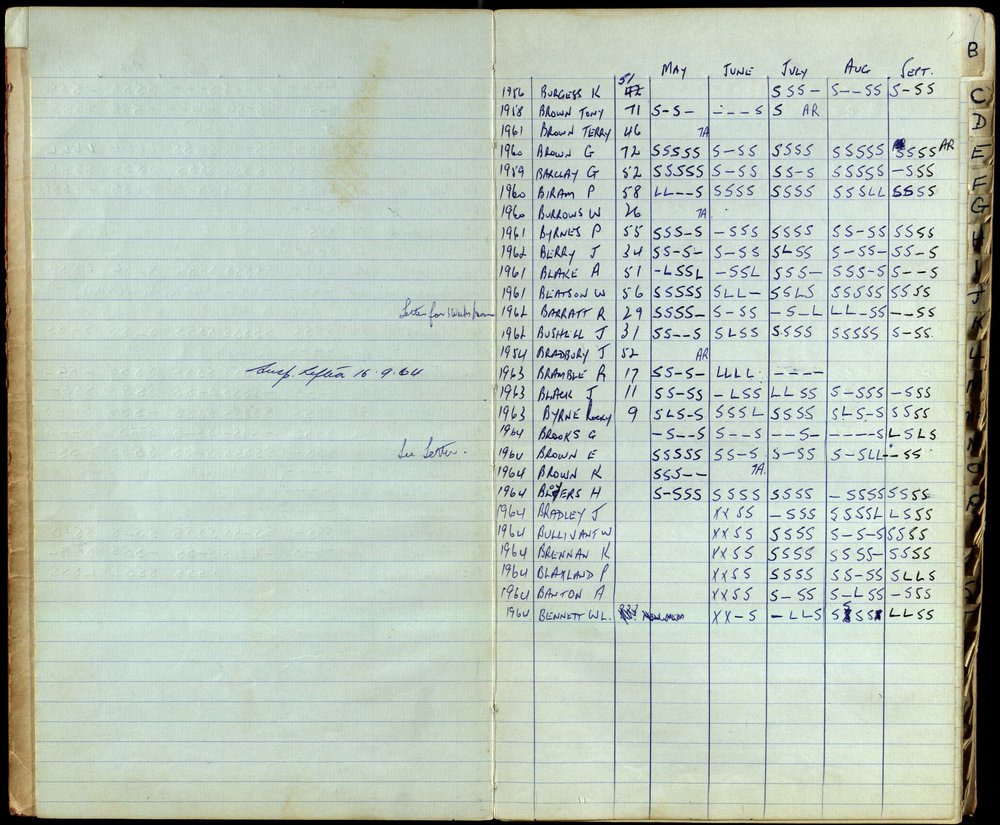 MAY JUNE JULY AUG SEPT. B
51
1956 BURGESS K 42 SSS- S--SS S-SS
C
1958 BROWN TONY 71 S-S- ---S S AR
D
1961 BROWN TERRY 46 TA
1960 BROWN G 72 SSSSS S-SS SSSS SSSSS SSSS AR
E
1959 BARCLAY G 52 SSSSS S-SS SS-S SSSSS -SSS
F
1960 BIRAM P 58 LL--S SSSS SSSS SSSLL SSSS
G
1960 BURROWS W 26 TA
1961 BYRNES P 55 SSS-S -SSS SSSS SS-SS SSSS
H
1962 BERRY J 34 SS-S- S-SS SLSS S-SS- SS-S
I
1961 BLAKE A 51 -LSSL -SSL SSS- SSS-S S--S
1961 BEATSON W 56 SSSSS SLL- SSLS SSSSS SSSS
J
Letter for 1962 BARRATT R 29 SSSS- S-SS -S-L LL-SS --SS
K
1962 BUSHELL J 31 SS--S SLSS SSSS SSSSS S-SS
L
1954 BRADBURY J 52 AR
16.9.64 1963 BRAMBLE R 17 SS-S- LLLL ----
1963 BLACK J 11 SS-SS -LSS LLSS S-SSS -SSS
1963 BYRNE ROCKY 9 SLS-S SSSL SSSS SLS-S SSSS
1964 BROOKS G -S--S S--S --S- ----S LSLS
See Letter. 1964 BROWN E SSSSS SS-S S-SS S-SLL --SS
1964 BROWN K SSS-- TA
1964 H S-SSS SSSS SSSS -SSSS SSSS
1964 BRADLEY J XXSS -SSS SSSSL LSSS
1964 BULLIVANT W XXSS SSSS S-S-S SSSS
1964 BRENNAN K XXSS SSSS SSSS- SSSS
1964 BLAXLAND P XXSS SSSS SS-SS SLLS
1964 BANTON A XXSS S-SS S-LSS -SSS
1964 BENNETT WL. XX-S -LLS LLSS